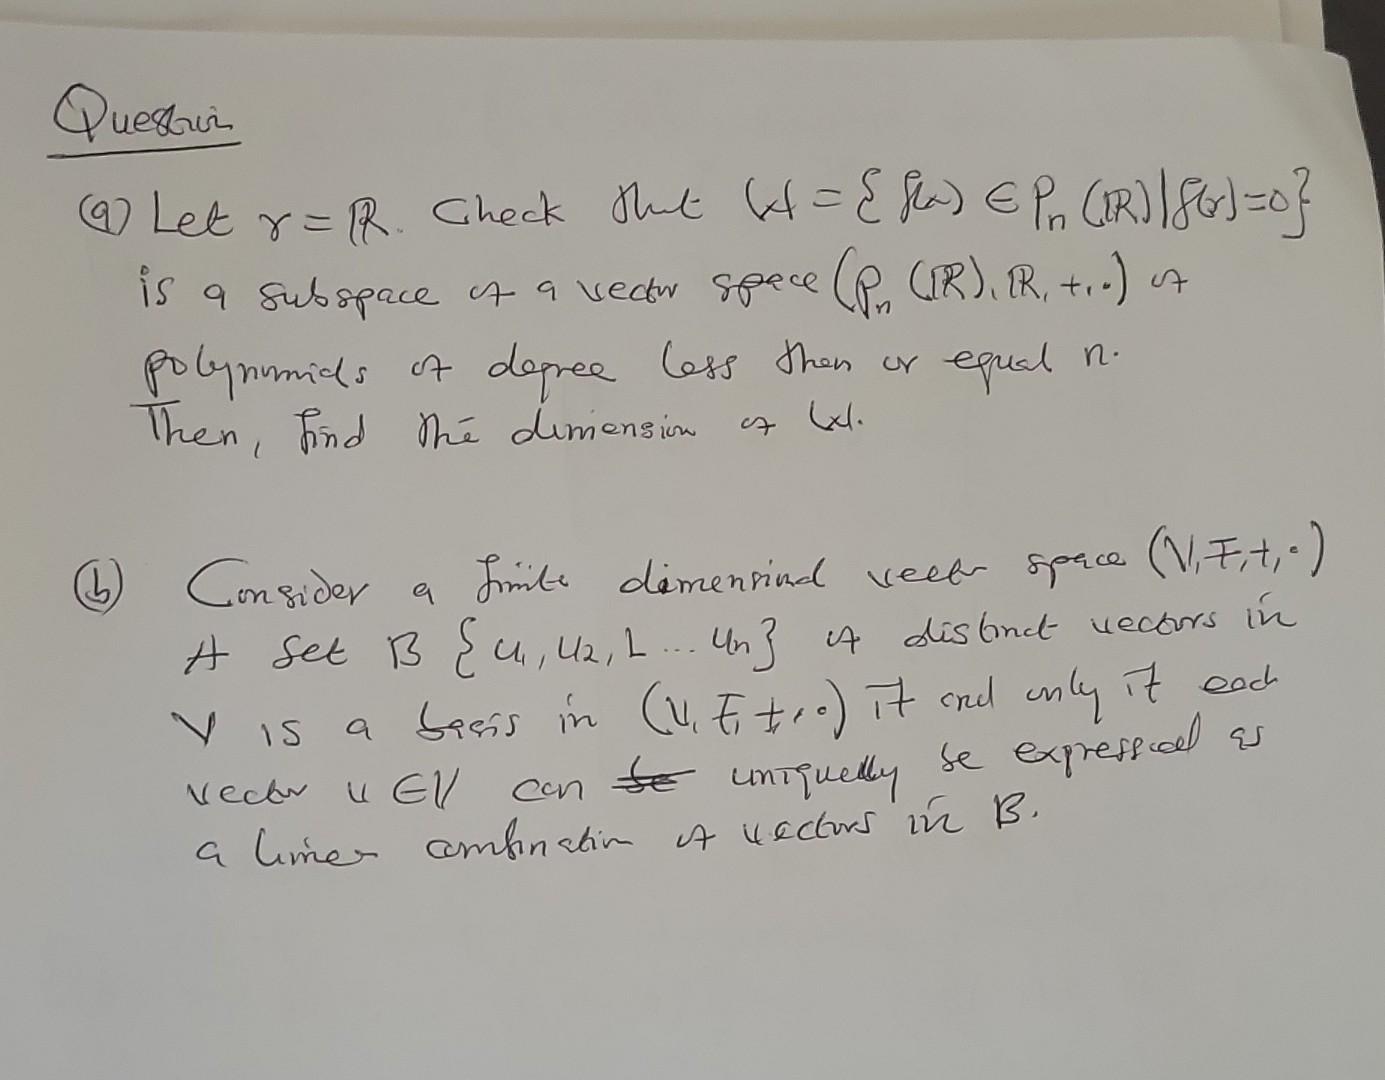 Question
(a) Let r = ℝ. Check that W = { f(x) ∈ Pn (ℝ) | f(r) = 0 }
is a subspace of a vector space (Pn (ℝ), ℝ, +, ·) of
polynomials of degree less than or equal n.
Then, find the dimension of W.
(b) Consider a finite dimensional vector space (V, F, +, ·)
A set B { u1, u2, L ... un } of distinct vectors in
V is a basis in (V, F, +, ·) if and only if each
vector u ∈ V can be uniquelly be expressed as
a linear combination of vectors in B.